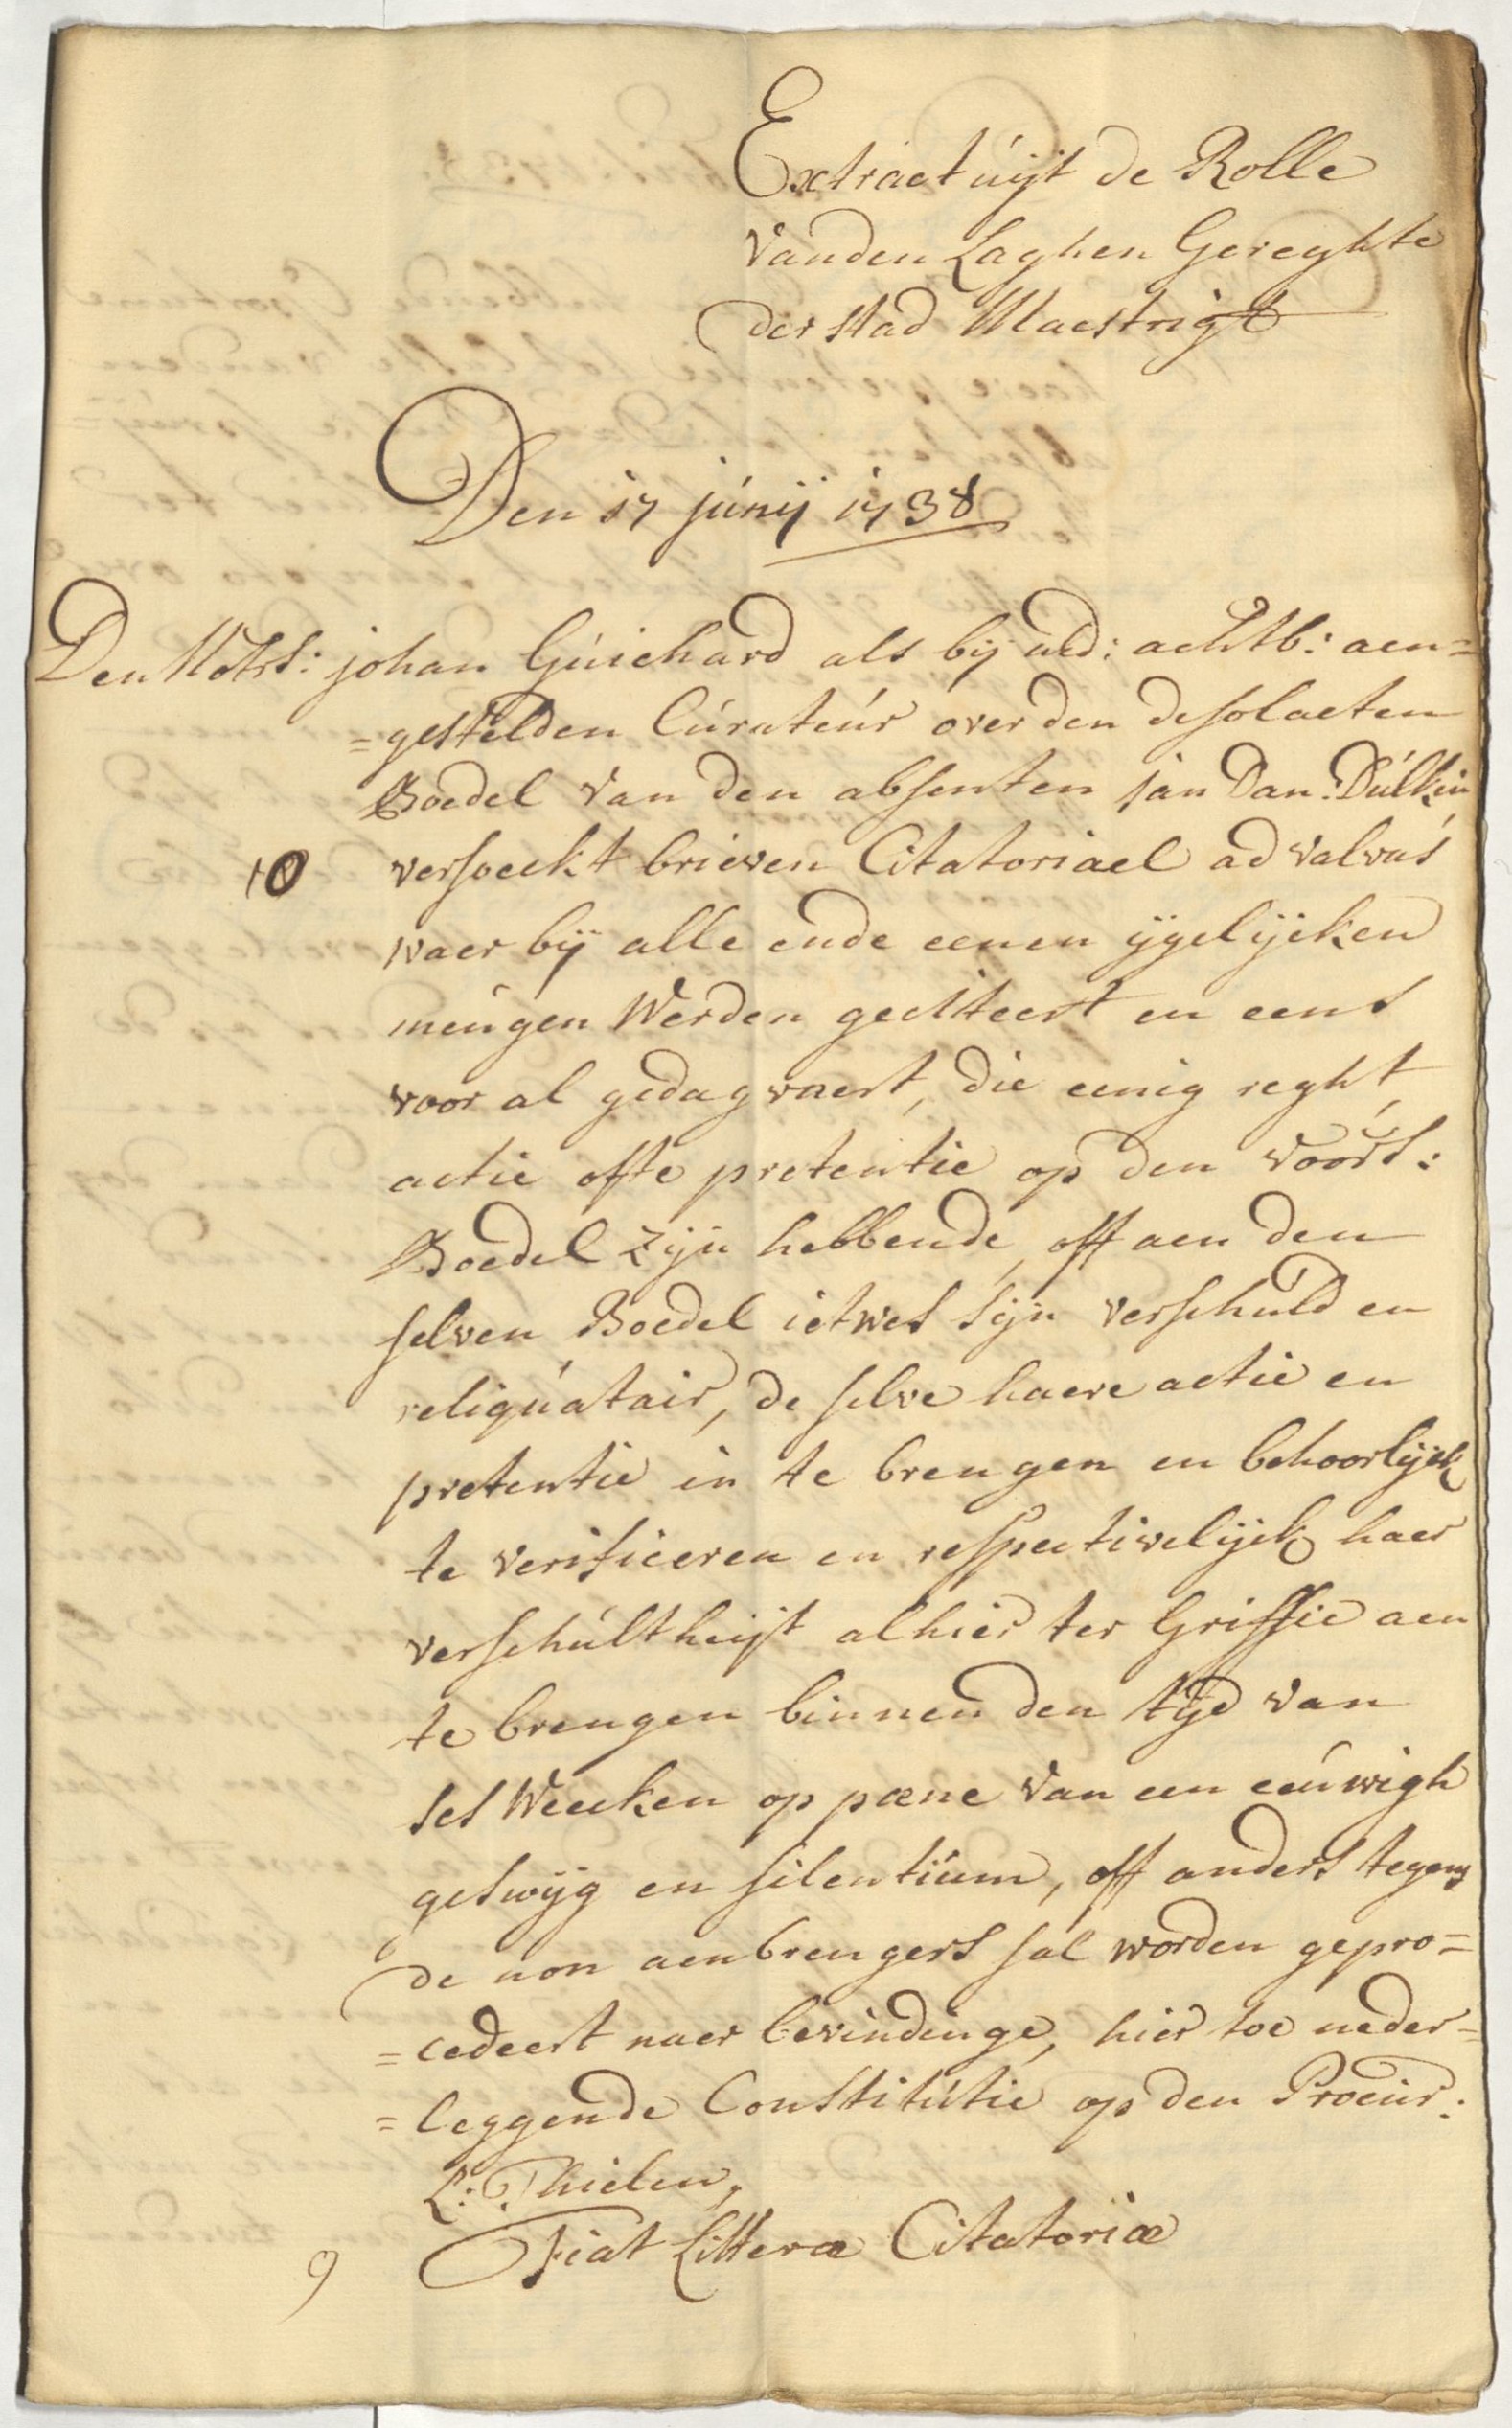 Extract uijt de Rolle
vanden Laghen Gereghte
der stad Maestrigt
Den 17 junij 1738
Den Notrs: johan Guichard als bij ued: achtb: aen=
=gestelden Curateur over den desolaeten
Boedel van den absenten jan Dan: Dulkin
10 versoeckt brieven Citatoriael ad valvas
waer bij alle ende eenen ygelijcken
meugen werden geciteert en eens
voor al gedagvaert, die eenig reght,
actie ofte pretentie op den voors:
Boedel zijn hebbende, off aen den
selven Boedel ietwes sijn verschuld en
reliquatair, de selve haere actie en
pretentie in te brengen en behoorlijck
te verificeren en respectivelijck haer
verschultheijt alhier ter Griffie aen
te brengen binnen den tijd van
ses weecken op pœne van een eeuwigh
geswijg en silentium, off anders tegens
de non aenbrengers sal worden gepro=
=cedeert naer bevindinge, hier toe neder=
=leggende Constitutie op den Procur:
L: Thielen,
Fiat Litteræ Citatoriæ
9